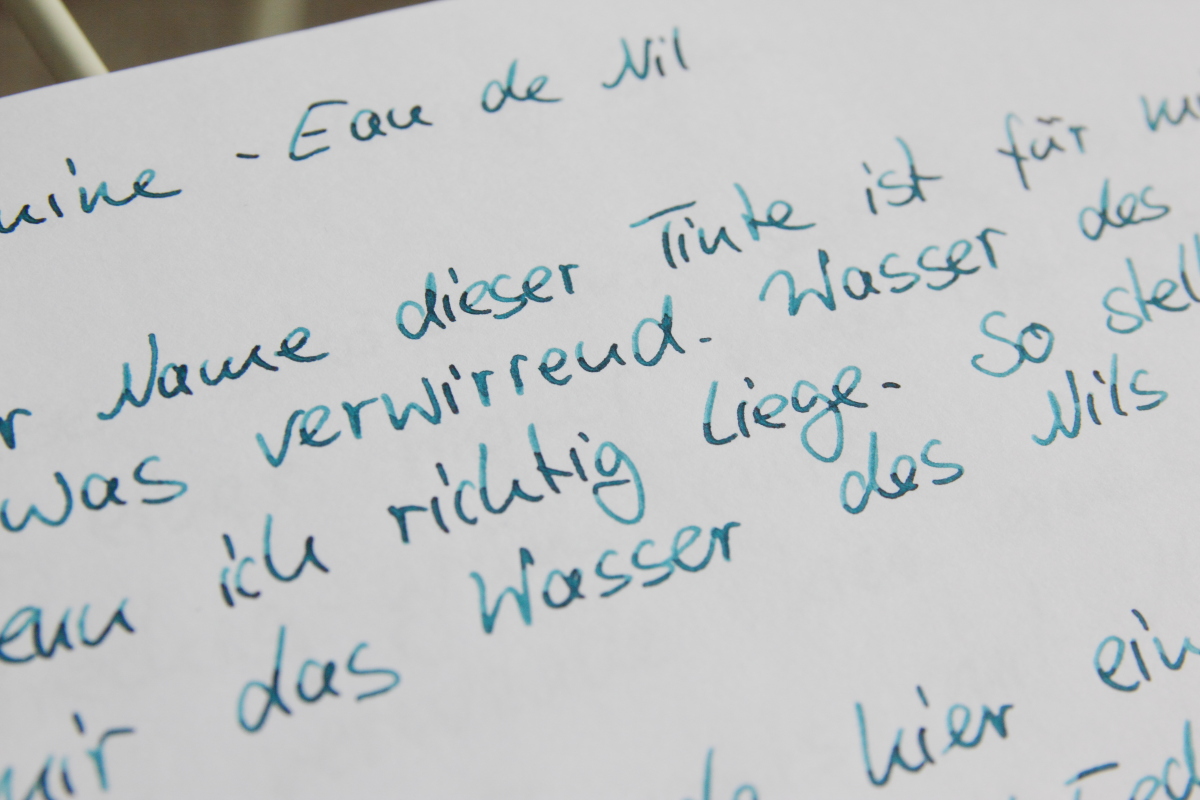 - Eau de Nil
Name dieser Tinte ist für
was verwirrend. Wasser des
ich richtig liege. So
das Wasser des Nils
hier